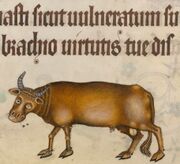 nasti sicut uulneratum su
brachio uirtutis tue dis